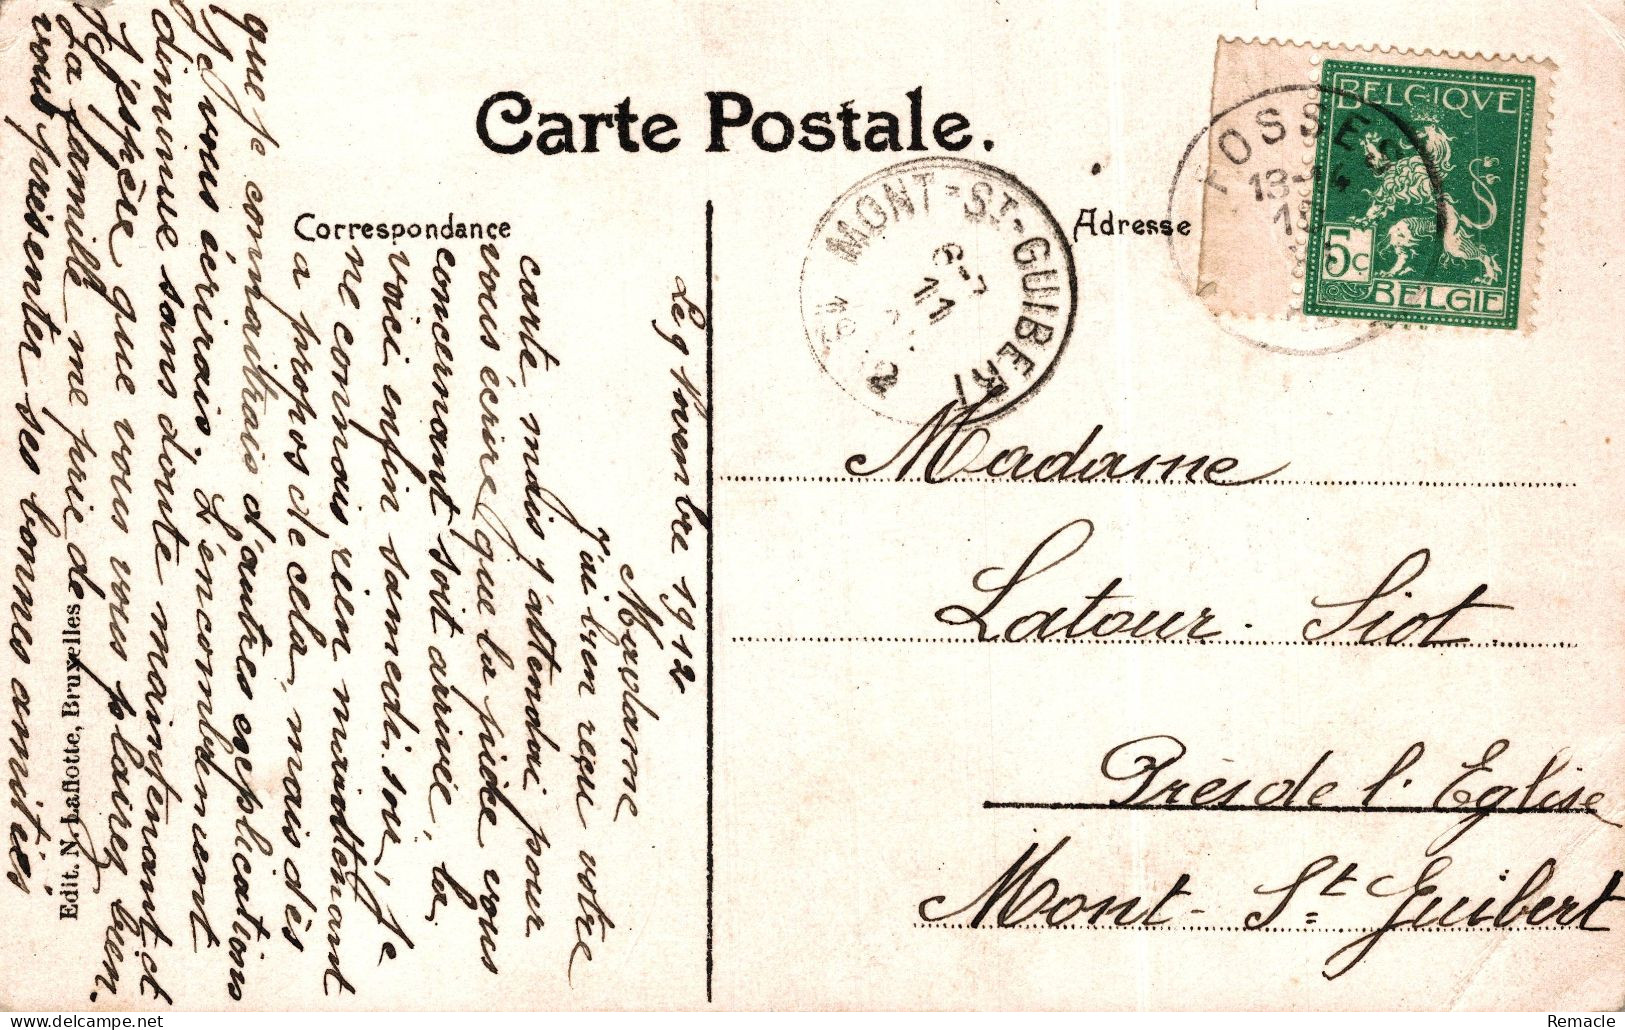 Carte Postale.
Correspondance
Adresse
BELGIQVE
5c
BELGIE
FOSSES
13-14
18
MONT-ST-GUIBERT
6-7
11
Le 9 Novembre 1912
Madame
J'ai bien reçu votre
carte mais j'attendai pour
vous écrire que la pièce vous
concernant soit arrivée, la
voici enfin samedi soir, je
ne connais rien maintenant
a propos de cela, mais dès
que je connaitrais d'autres explications
je vous écrirais. L'encombrement
diminue sans doute maintenant
J'espère que vous vous plairez bien.
La famille me prie de
vous présenter ses bonnes amitiés
Edit. N. Laflotte, Bruxelles
Madame
Latour-Siot
Près de l'Eglise
Mont-St Guibert
Remacle